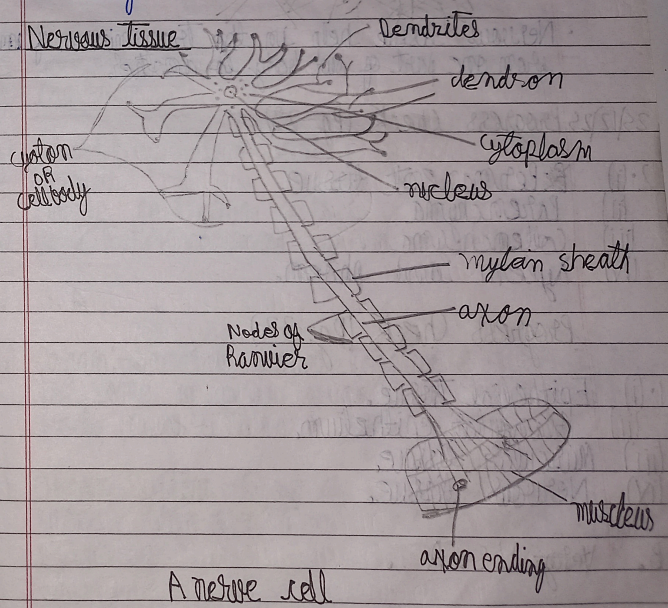 Nervous tissue
Dendrites
dendron
cytoplasm
nucleus
cyton
OR
cell body
mylan sheath
axon
Nodes of
Ranvier
muscleus
axon ending
A nerve cell